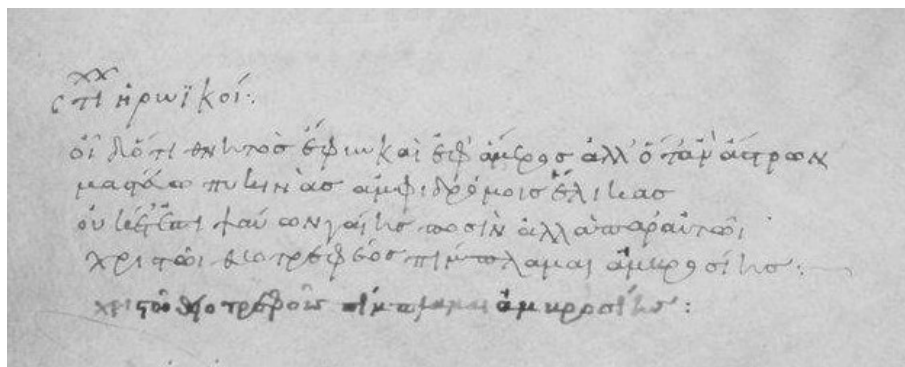 στι ἡρωϊκοί:
οἶ διότι θνητὸσ ἔφυν καὶ ἐφ' ἅμεροσ ἀλλ' ὅτ' ἂν ἄστρων
μαστεύω πυκινὰσ ἀμφιδρόμοισ ἕλικασ
οὐκέτ' ἐπιψαύων γαίησ ποσὶν ἀλλὰ παρ αὐτῶι
χριστῶι θεοτρεφέοσ πίμπλαμαι ἀμβροσίησ:
πίμπλαμαι ἀμβροσίησ: